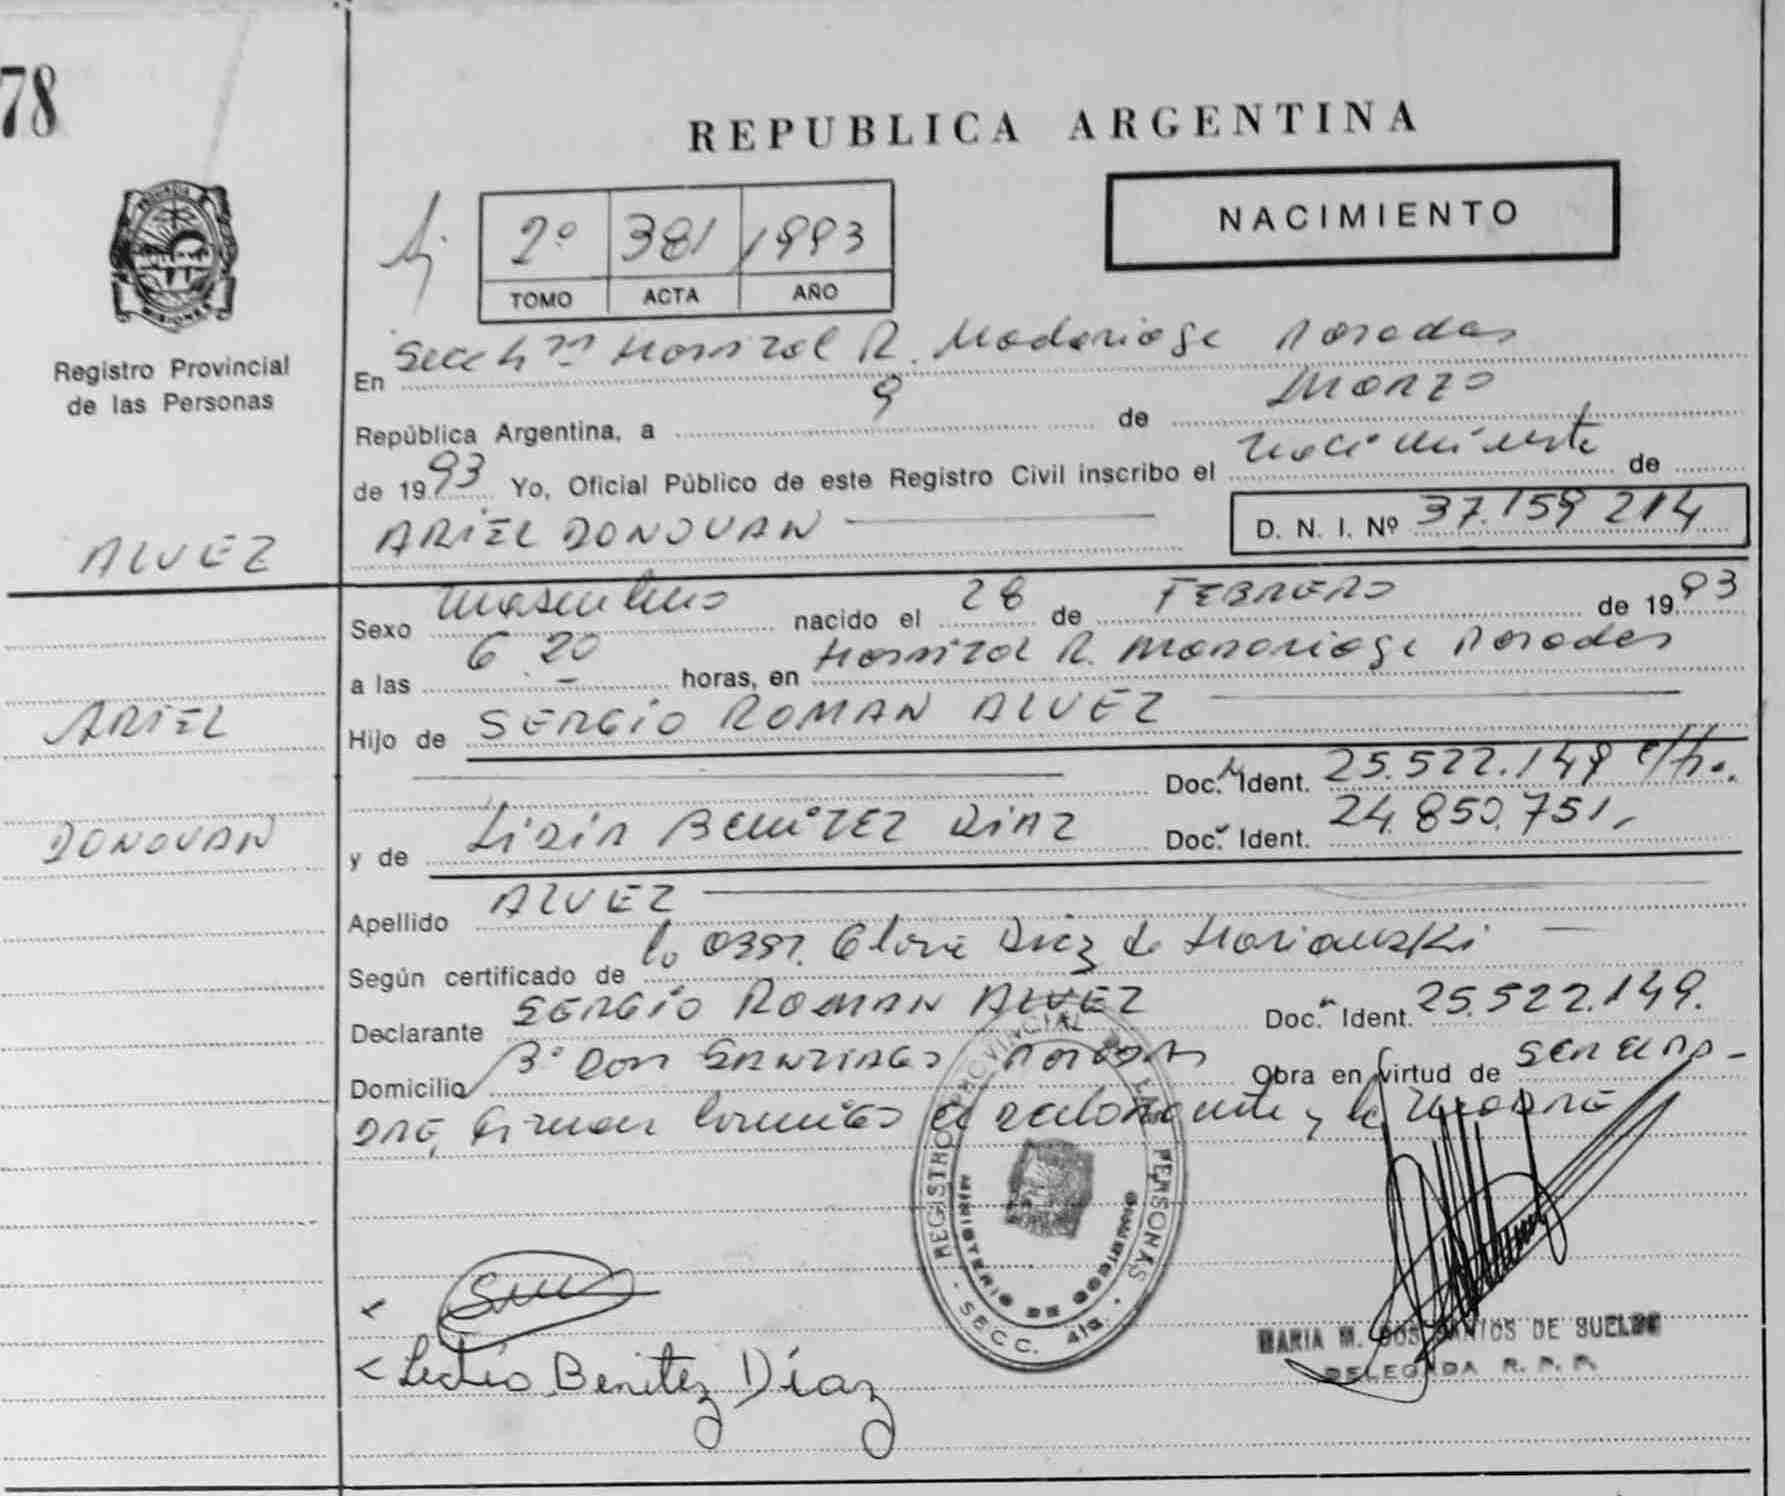 78
REPUBLICA ARGENTINA
NACIMIENTO
2º 381 1993
TOMO ACTA AÑO
Registro Provincial
de las Personas
En Secc 4ta Hospital R. Madariaga Posadas
República Argentina, a 9 de Marzo
de 1993 Yo, Oficial Público de este Registro Civil inscribo el nacimiento de
ALVEZ
ARIEL DONOVAN D. N. I. Nº 37.159 214
Sexo masculino nacido el 28 de FEBRERO de 1993
a las 6 20 horas, en Hospital R. Madariaga Posadas
ARIEL
Hijo de SERGIO ROMAN ALVEZ
Doc. Ident. 25.522.149
DONOVAN
y de BENITEZ DIAZ Doc. Ident. 24.850.751
Apellido ALVEZ
Según certificado de la Obst. Diez de
Declarante SERGIO ROMAN ALVEZ Doc. Ident. 25.522.149.
Domicilio Bº DON SANTIAGO POSADAS Obra en virtud de SER EL PA-
DRE, firman conmigo el declarante y la MADRE
REGISTRO PROVINCIAL DE LAS PERSONAS
MINISTERIO DE GOBIERNO
- SECC. 4ta. -
Benitez Díaz
MARIA M. DOS SANTOS DE SUELDO
DELEGADA R. P. P.